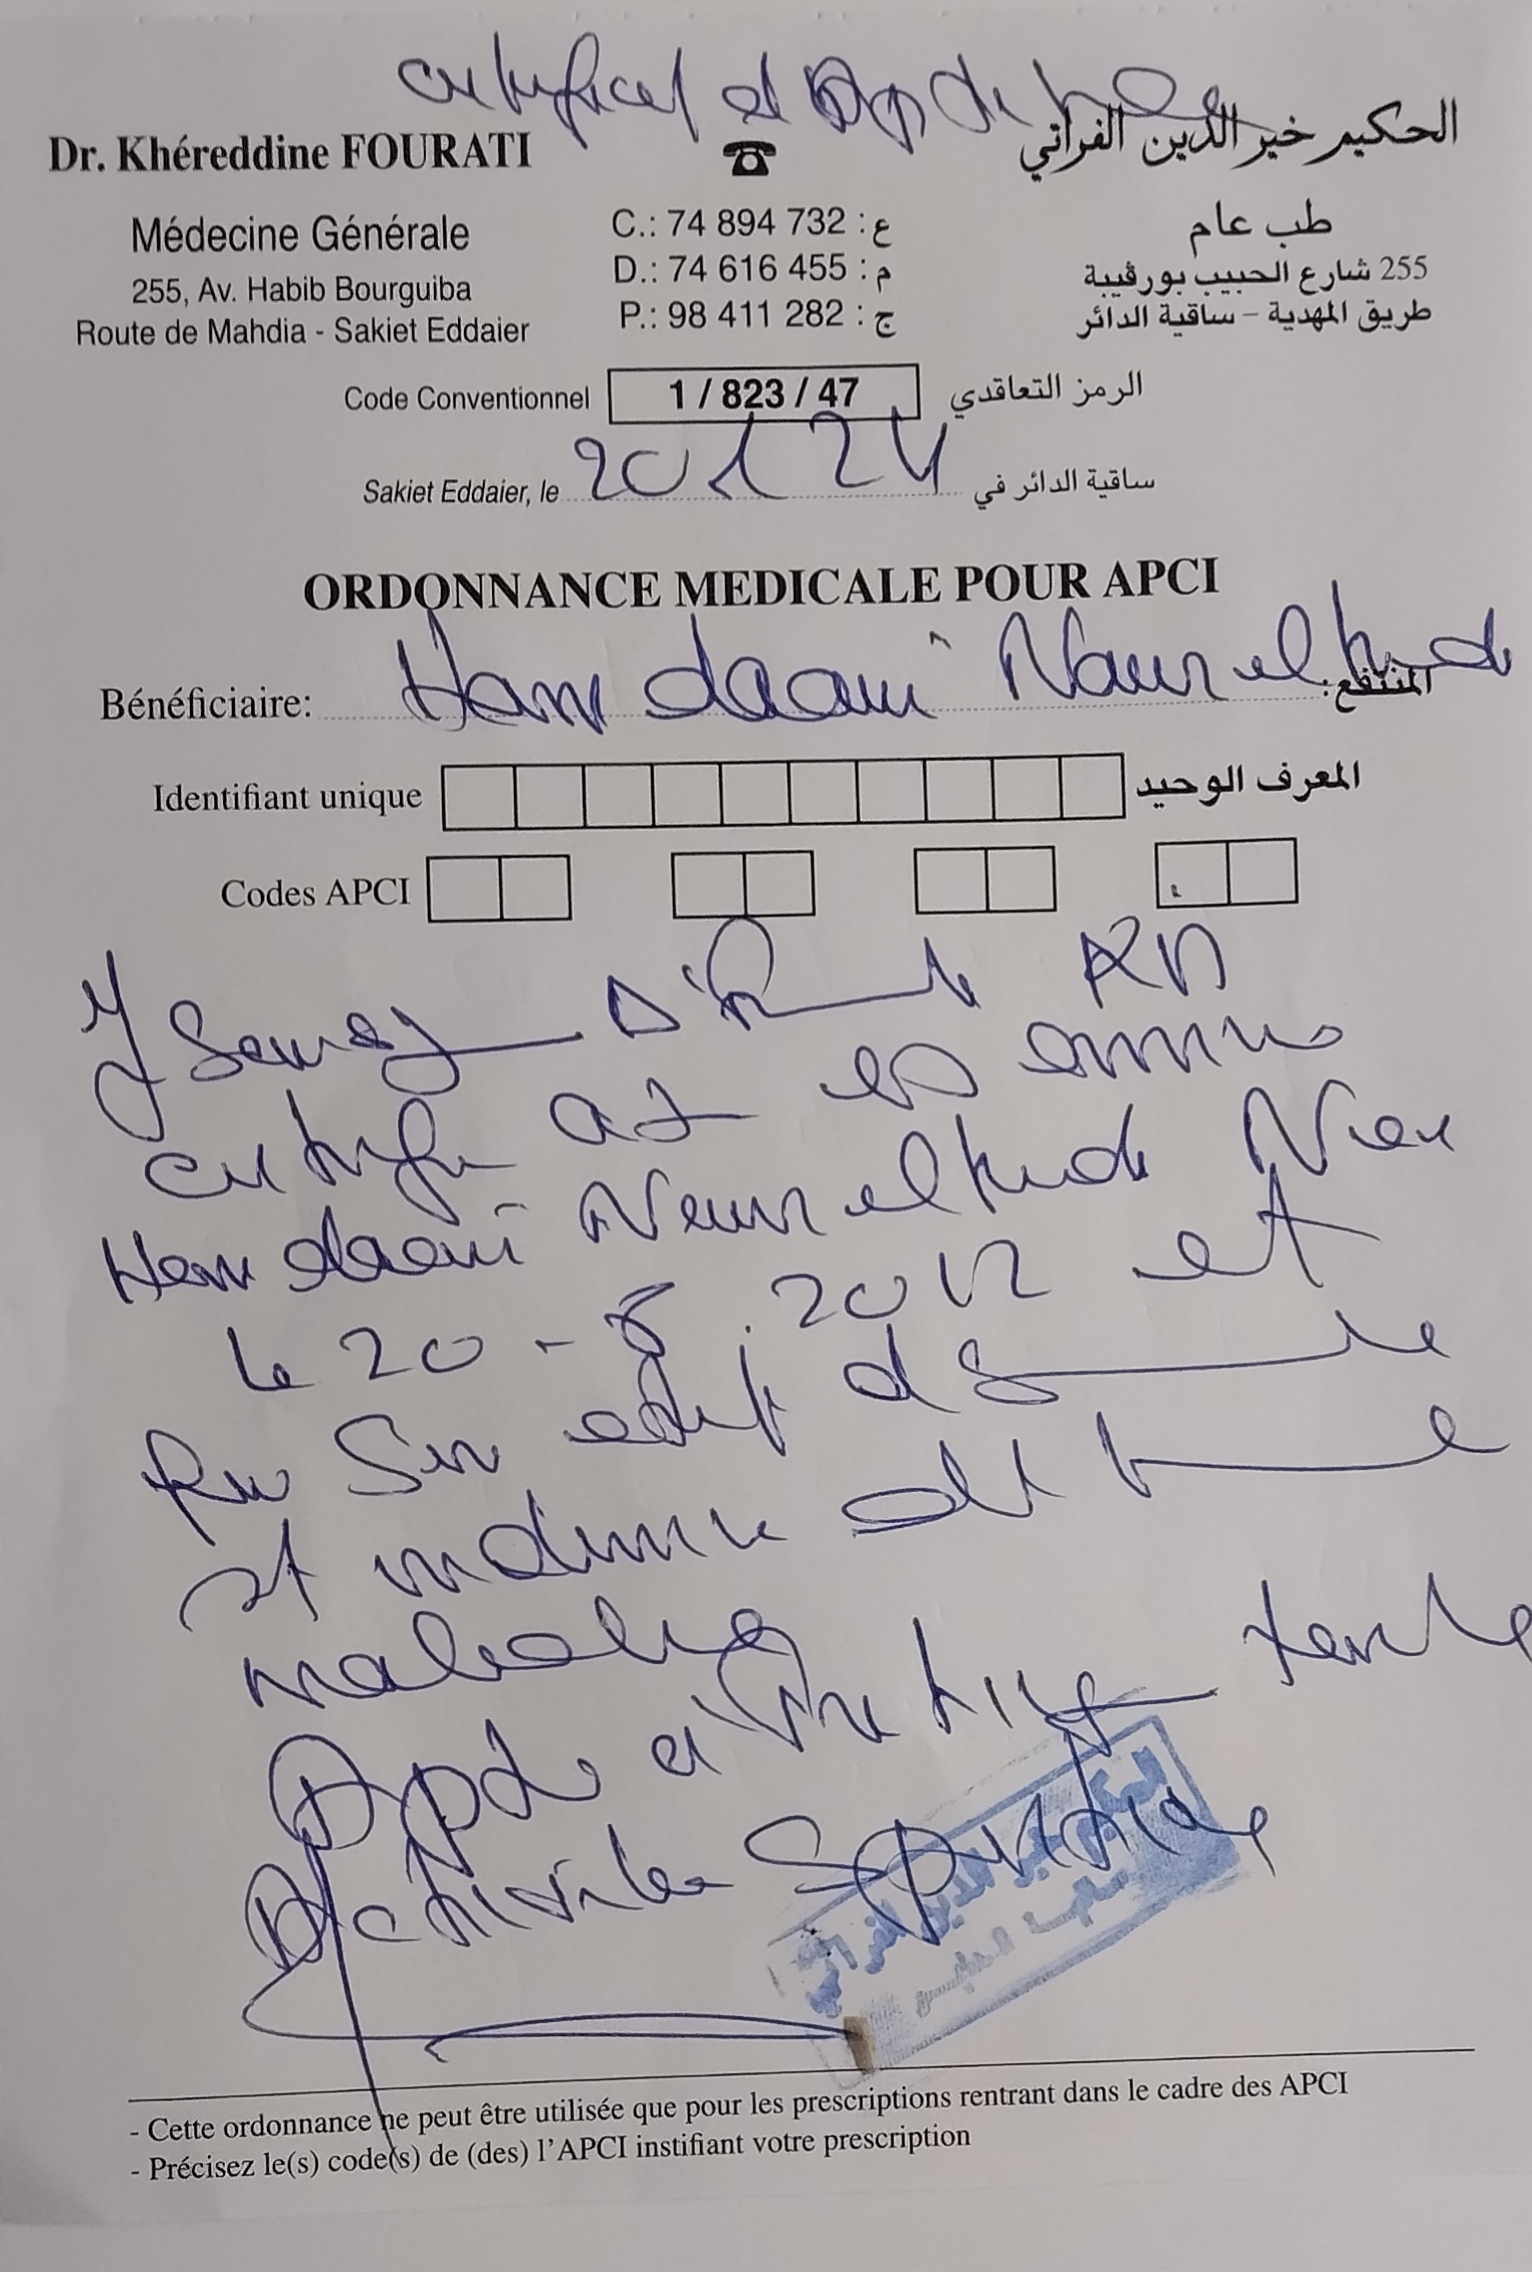 certificat d'Aptitude
Dr. Khéreddine FOURATI
Médecine Générale
255, Av. Habib Bourguiba
Route de Mahdia - Sakiet Eddaier
☎
C.: 74 894 732 : ع
D.: 74 616 455 : م
P.: 98 411 282 : ج
الحكيم خير الدين الفراتي
طب عام
255 شارع الحبيب بورقيبة
طريق المهدية – ساقية الدائر
Code Conventionnel 1 / 823 / 47 الرمز التعاقدي
Sakiet Eddaier, le 20 1 24 ساقية الدائر في
ORDONNANCE MEDICALE POUR APCI
Bénéficiaire: Hamdaoui Nour el houda المنتفع:
Identifiant unique المعرف الوحيد
Codes APCI
Je Soussigné Dr KH
certifie avoir examiné
Hamdaoui Nour el houda Née
le 20 - 8 . 2012 et
et indemne de toute
maladie
Apte à pratiquer toute
Activité Sportive
الحكيم خير الدين الفراتي
- Cette ordonnance ne peut être utilisée que pour les prescriptions rentrant dans le cadre des APCI
- Précisez le(s) code(s) de (des) l'APCI instifiant votre prescription